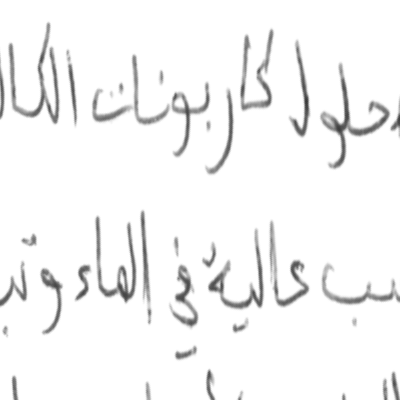 محلول كاربونات الكال
سب عالية في الماء وتب